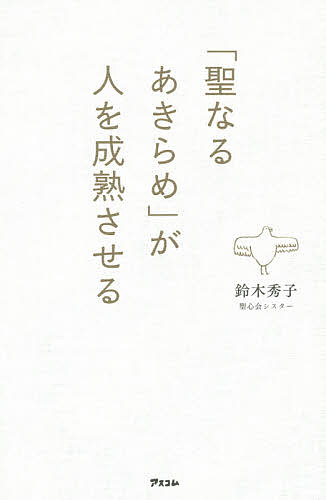 「聖なる
あきらめ」が
人を成熟させる
鈴木秀子
聖心会シスター
アスコム